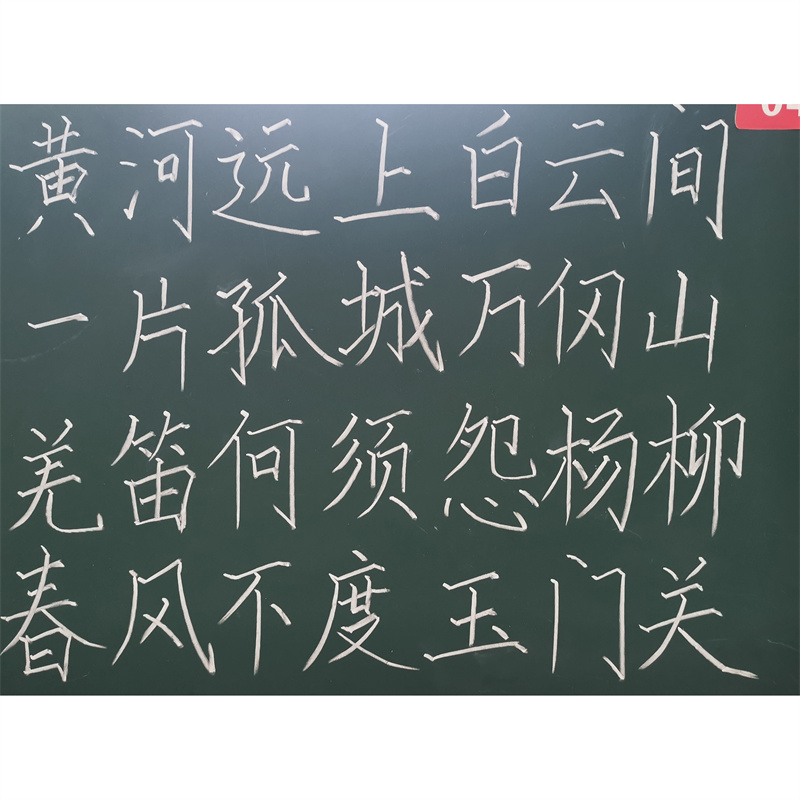 黄河远上白云间
一片孤城万仞山
羌笛何须怨杨柳
春风不度玉门关